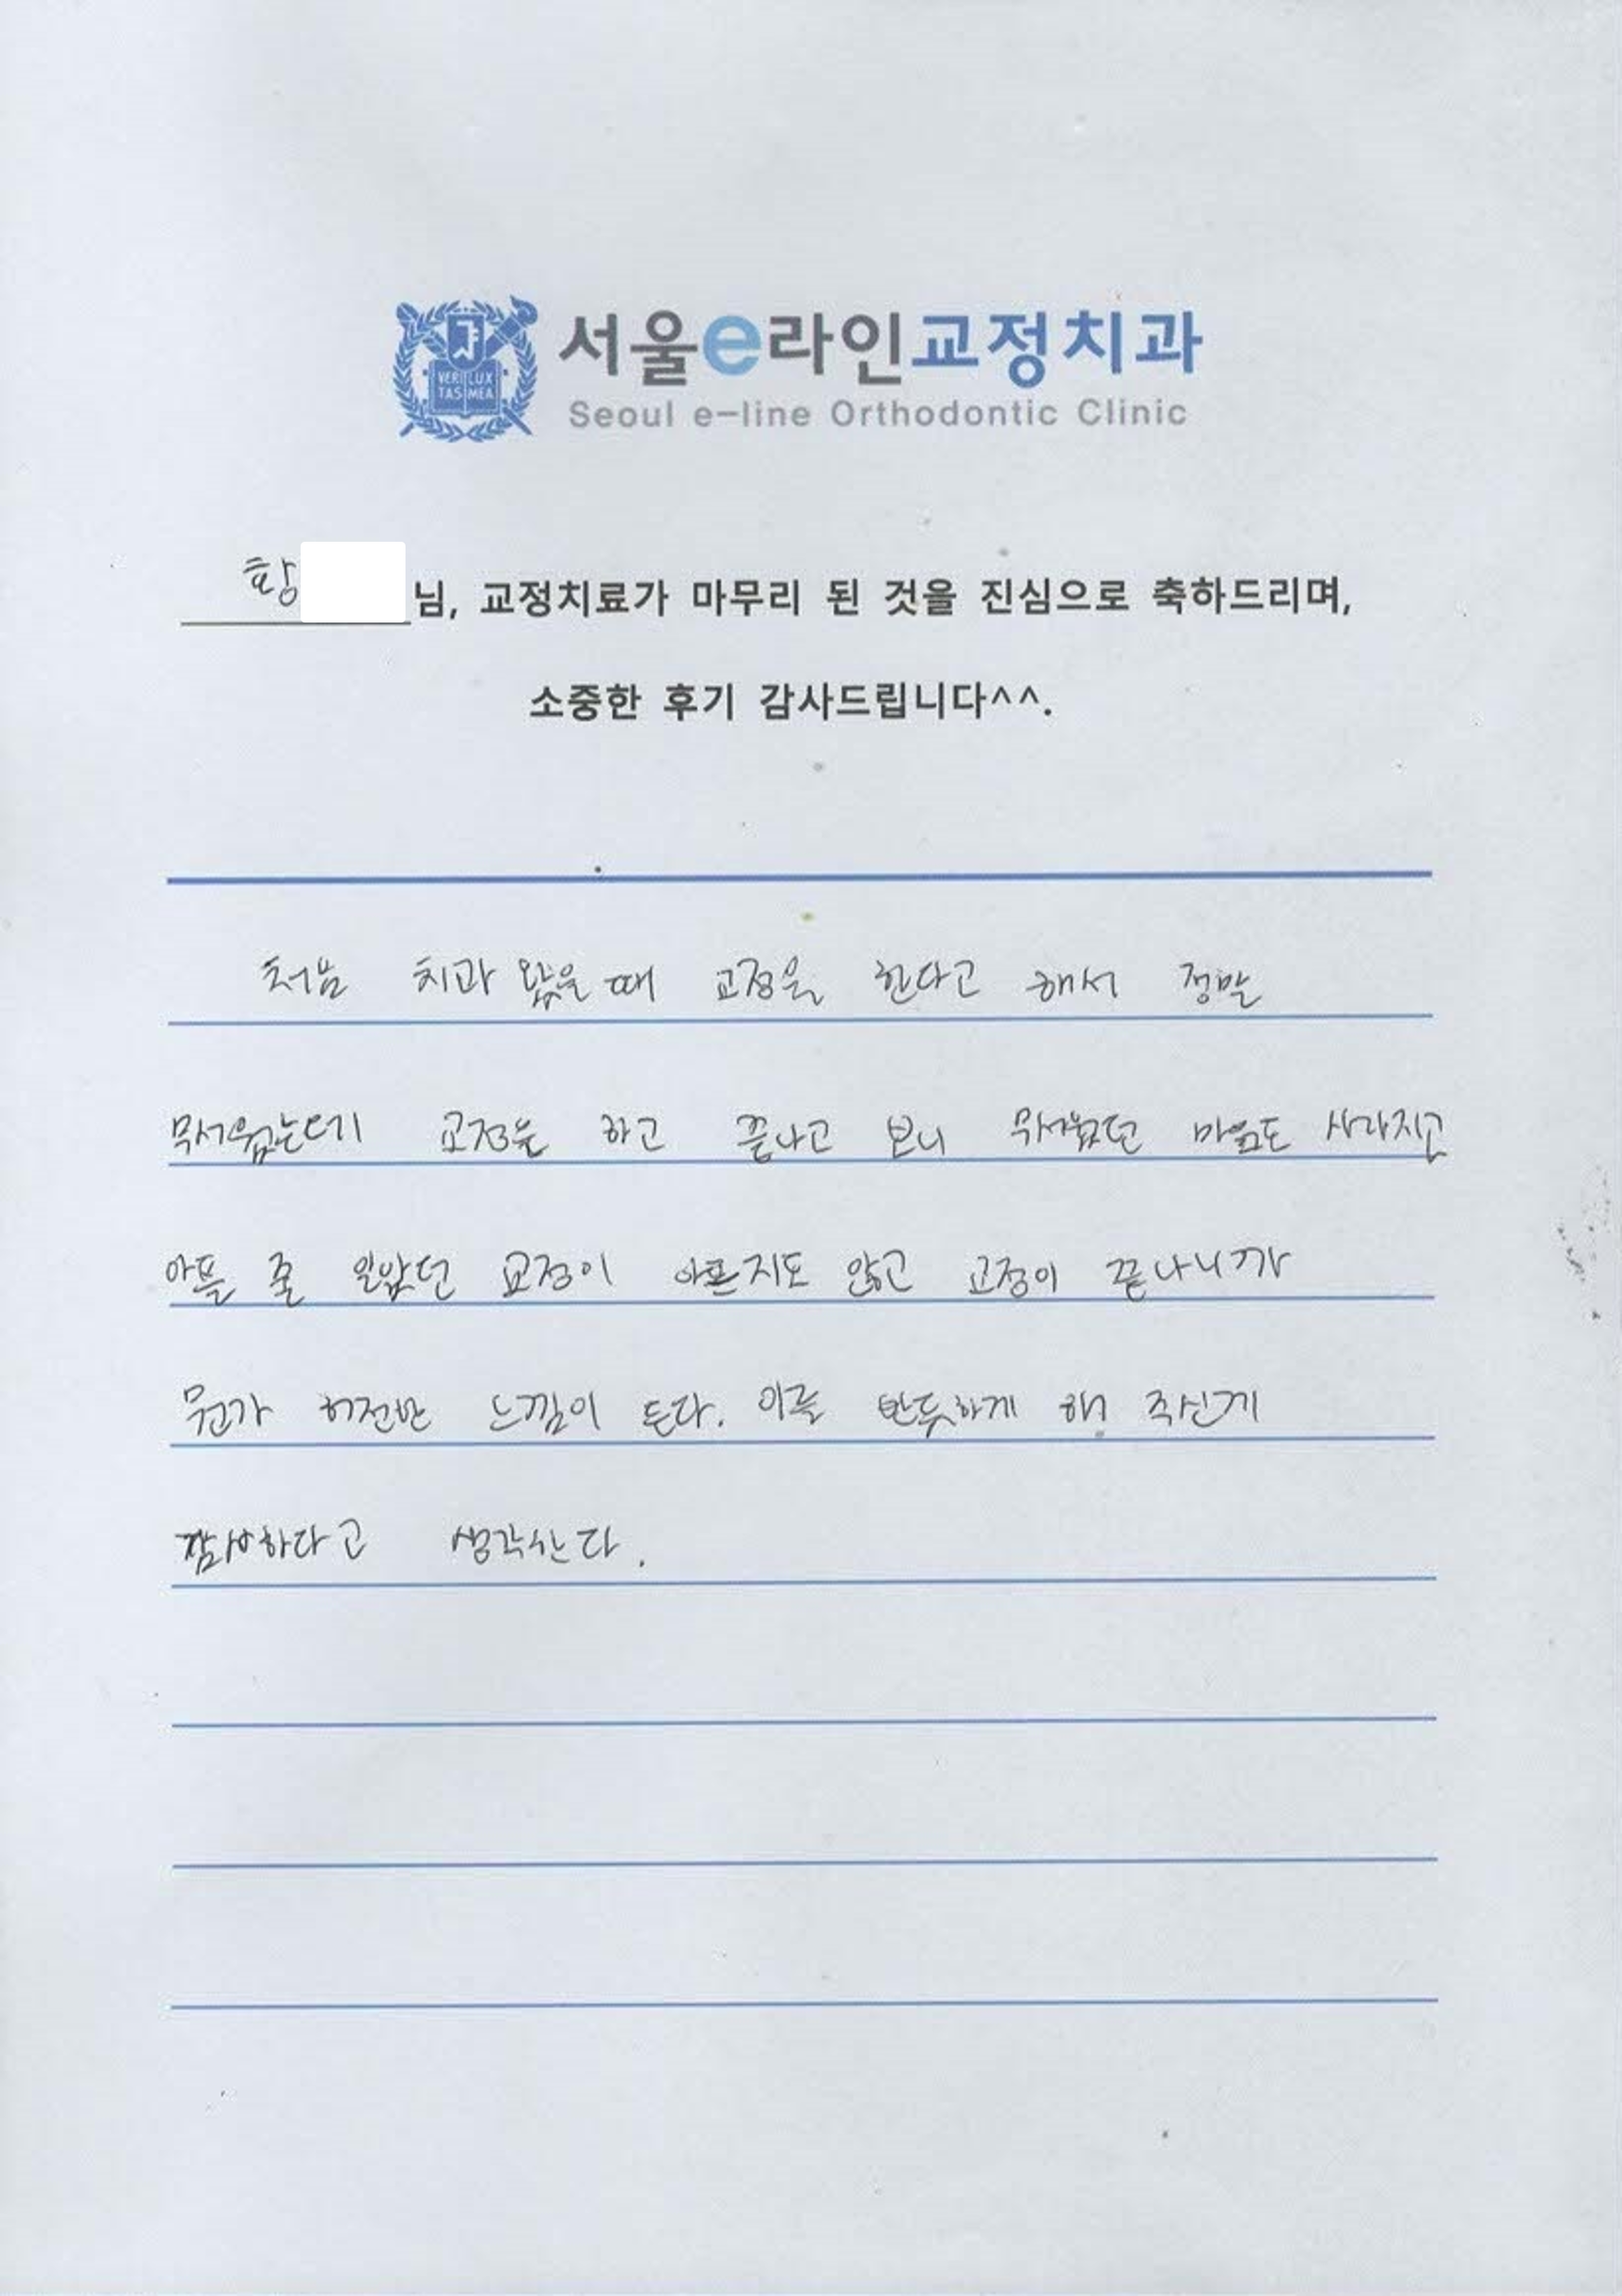 서울e라인교정치과
Seoul e-line Orthodontic Clinic
VERI LUX
TAS MEA
황 님, 교정치료가 마무리 된 것을 진심으로 축하드리며,
소중한 후기 감사드립니다^^.
처음 치과 왔을 때 교정을 한다고 해서 정말
무서웠는데 교정을 하고 끝나고 보니 무서웠던 마음도 사라지고
아플 줄 알았던 교정이 아프지도 않고 교정이 끝나니까
뭔가 허전한 느낌이 든다. 이를 반듯하게 해 주신게
감사하다고 생각한다.